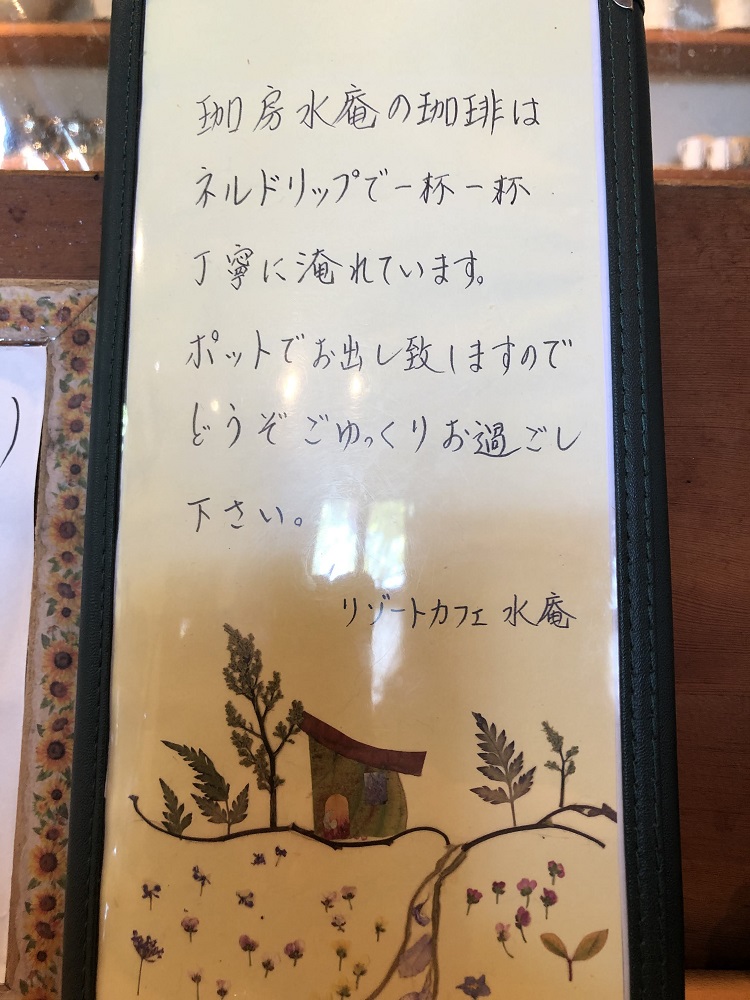 珈房水庵の珈琲は
ネルドリップで一杯一杯
丁寧に淹れています。
ポットでお出し致しますので
どうぞごゆっくりお過ごし
下さい。
リゾートカフェ 水庵